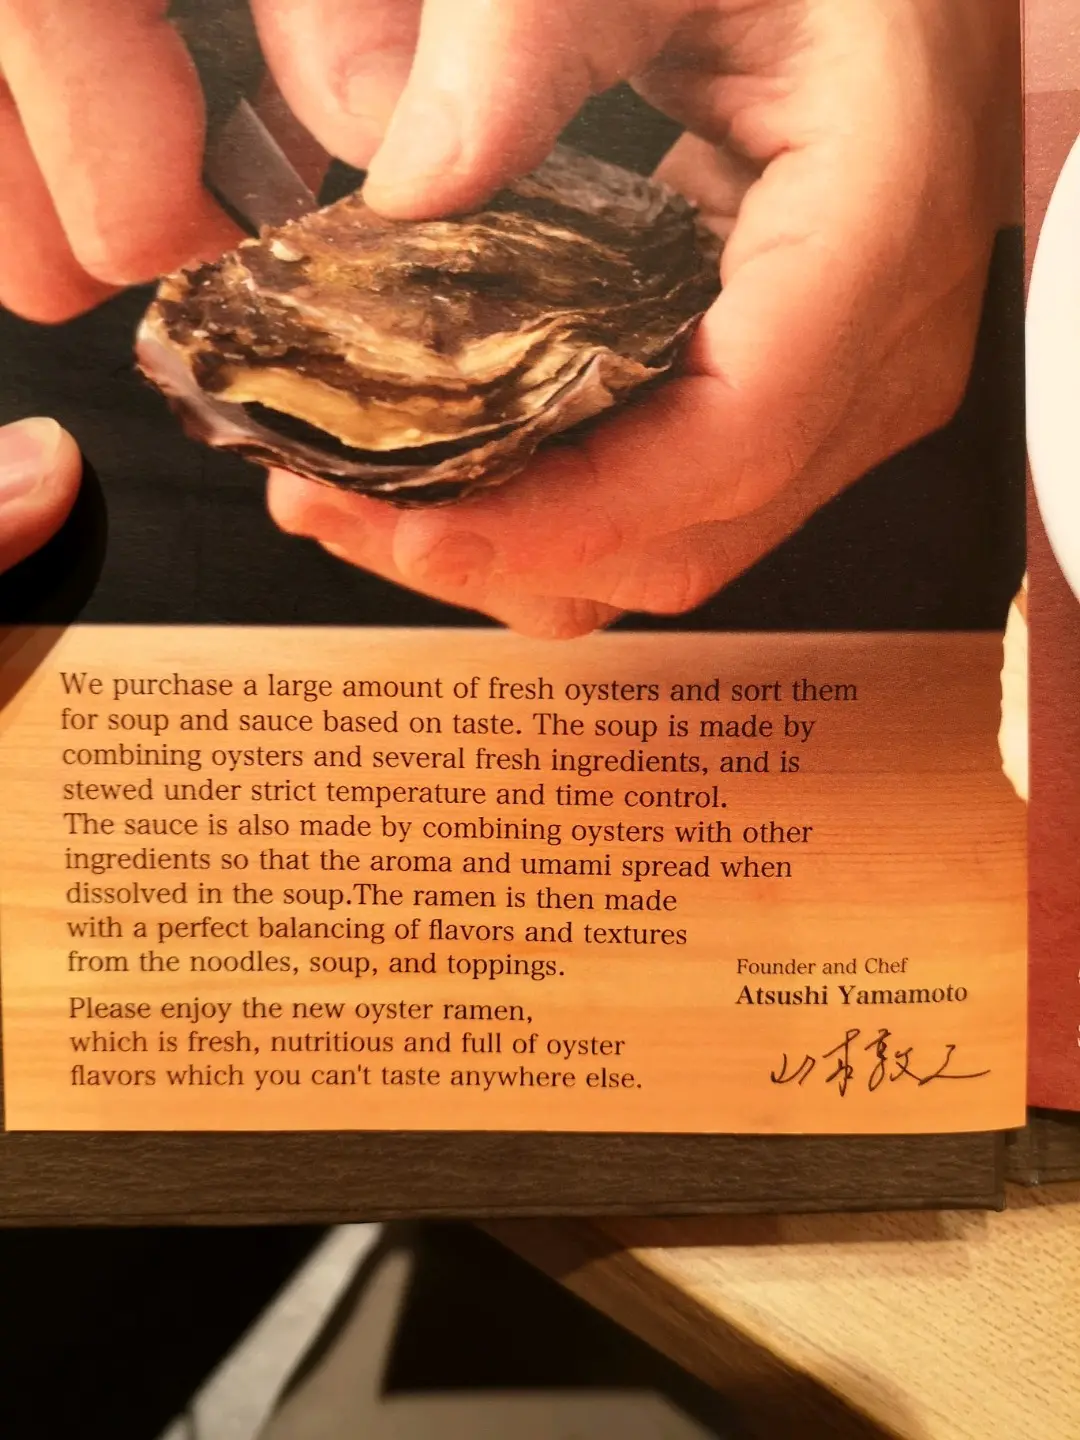 We purchase a large amount of fresh oysters and sort them
for soup and sauce based on taste. The soup is made by
combining oysters and several fresh ingredients, and is
stewed under strict temperature and time control.
The sauce is also made by combining oysters with other
ingredients so that the aroma and umami spread when
dissolved in the soup.The ramen is then made
with a perfect balancing of flavors and textures
from the noodles, soup, and toppings.
Please enjoy the new oyster ramen,
which is fresh, nutritious and full of oyster
flavors which you can't taste anywhere else.
Founder and Chef
Atsushi Yamamoto